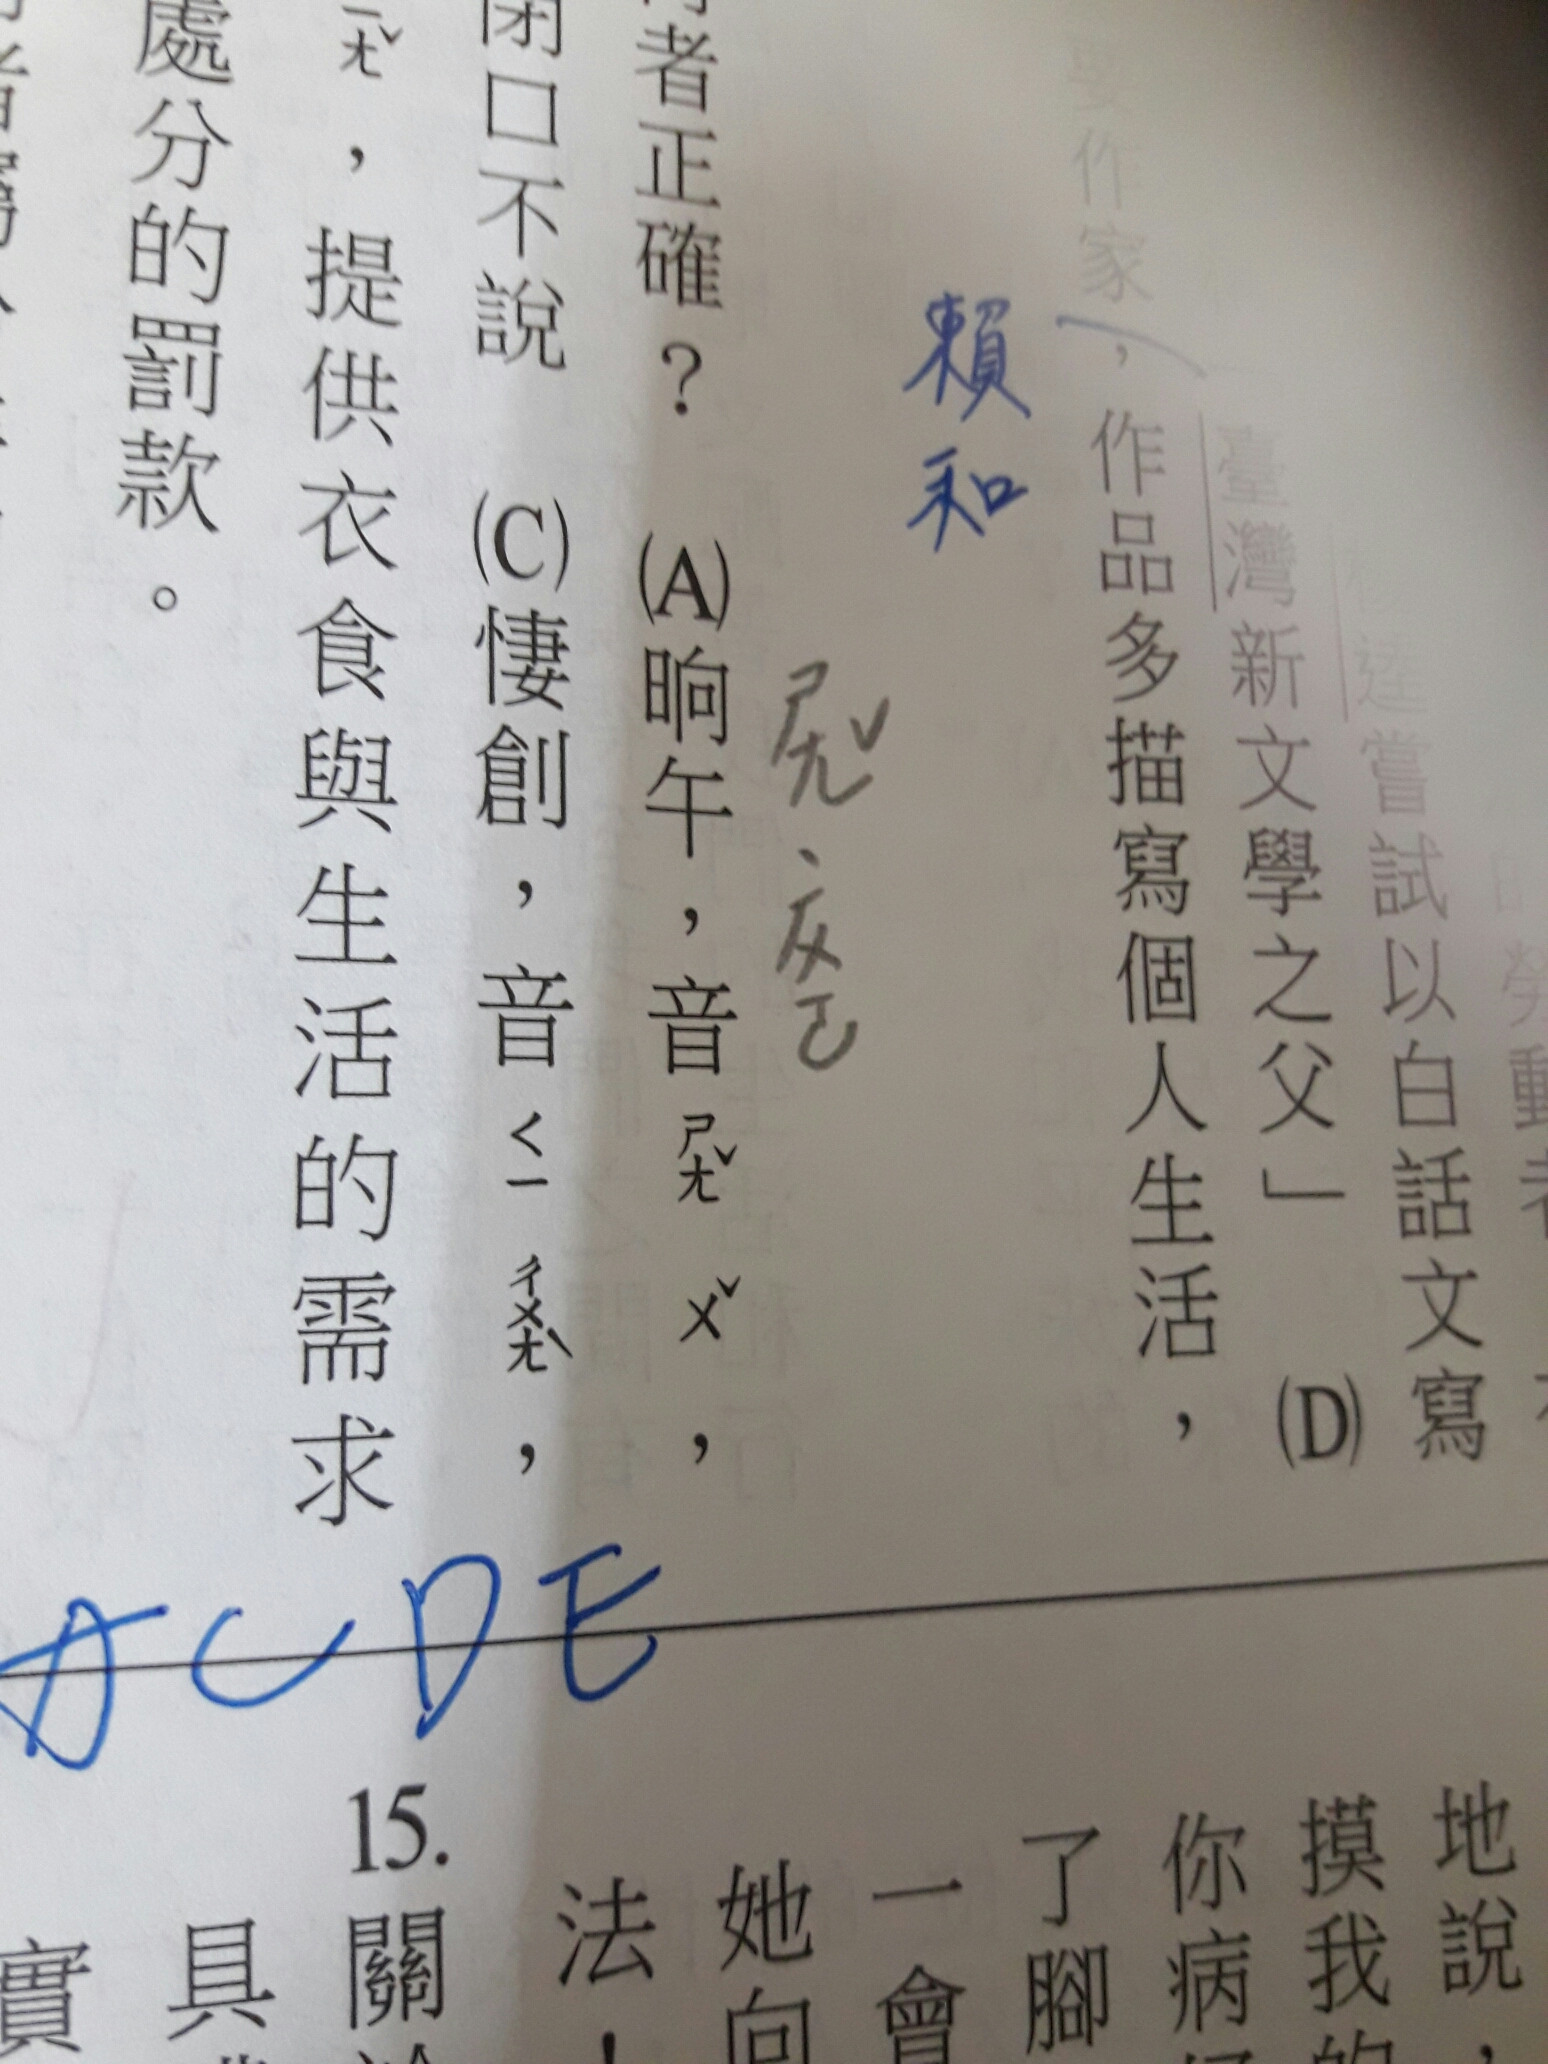 的勞動者
達嘗試以白話文寫
臺灣新文學之父」 (D)
要作家,作品多描寫個人生活,
賴和
ㄕㄤˇ
者正確? (A)晌午,音ㄕㄤˇ ㄨˇ,
閉口不說 (C)悽創,音ㄑㄧ ㄔㄨㄤˋ,
ㄧㄤˇ,提供衣食與生活的需求
處分的罰款。
ACDE
地說,
摸我的
你病
了腳
一會
她向
法!
15.關於
具
實